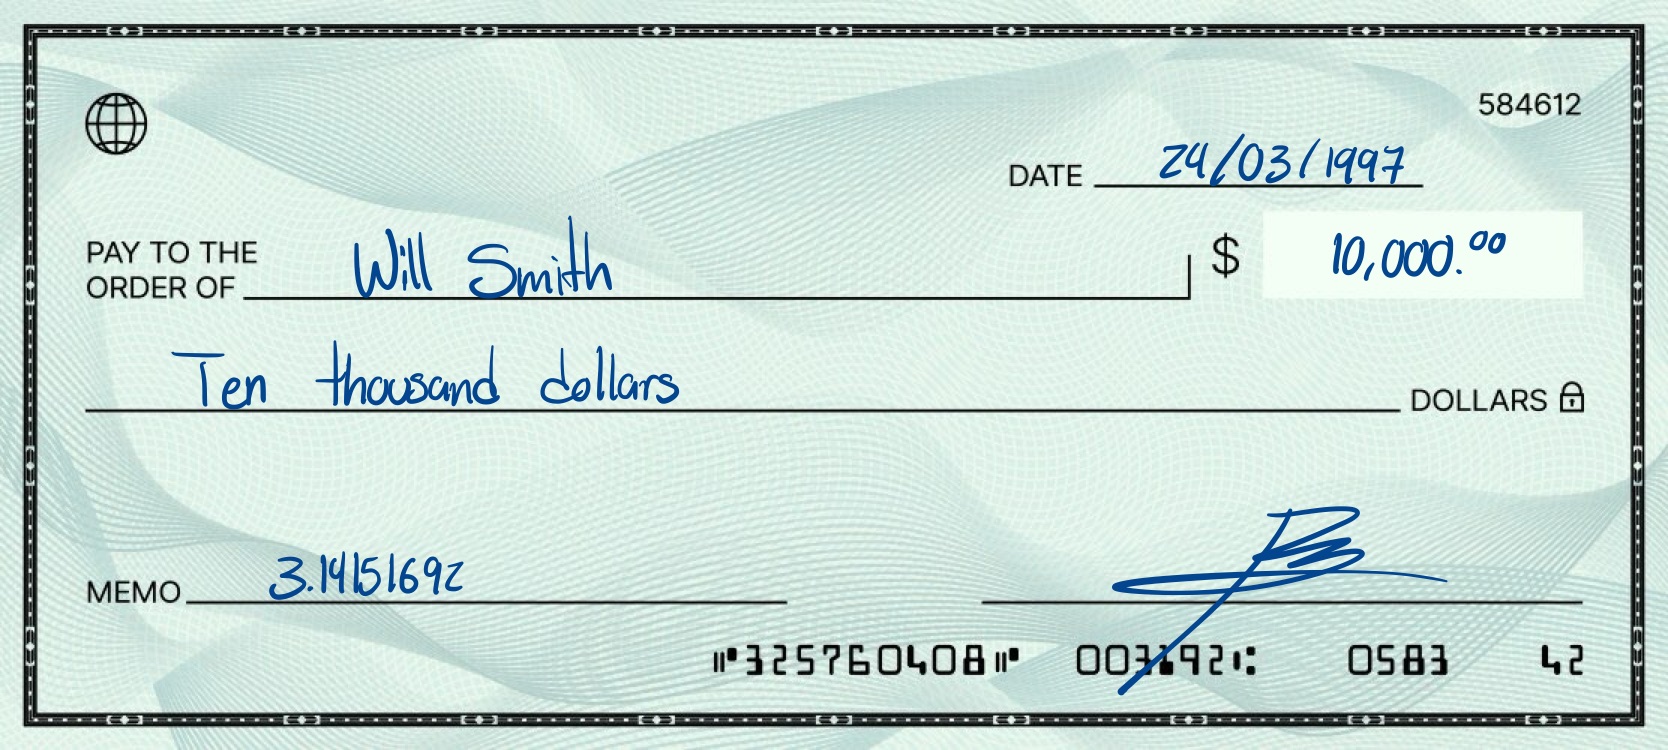 584612
DATE 24/03/1997
PAY TO THE
ORDER OF Will Smith $ 10,000.00
Ten thousand dollars DOLLARS
MEMO 3.14151692
325760408 003692 0583 42